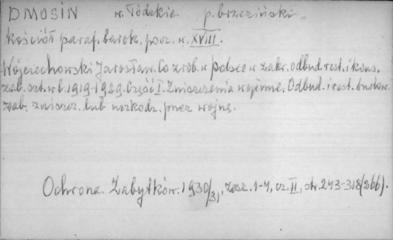 DMOSIN w. Łódzkie p. brzeziński.
Kościół paraf. barok. pocz. w. XVIII.
Wojciechowski Jarosław. Co zrob. w Polsce w zakr. odbud. rest. i kons.
zab. szt. w l. 1919-1929. Część I. Zniszczenia wojenne. Odbud. i rest. budow.
zab. zniszcz. lub uszkodz. przez wojnę.
Ochrona Zabytków. 1930/31, zesz. 1-4, cz. II, str. 243-318 (266).